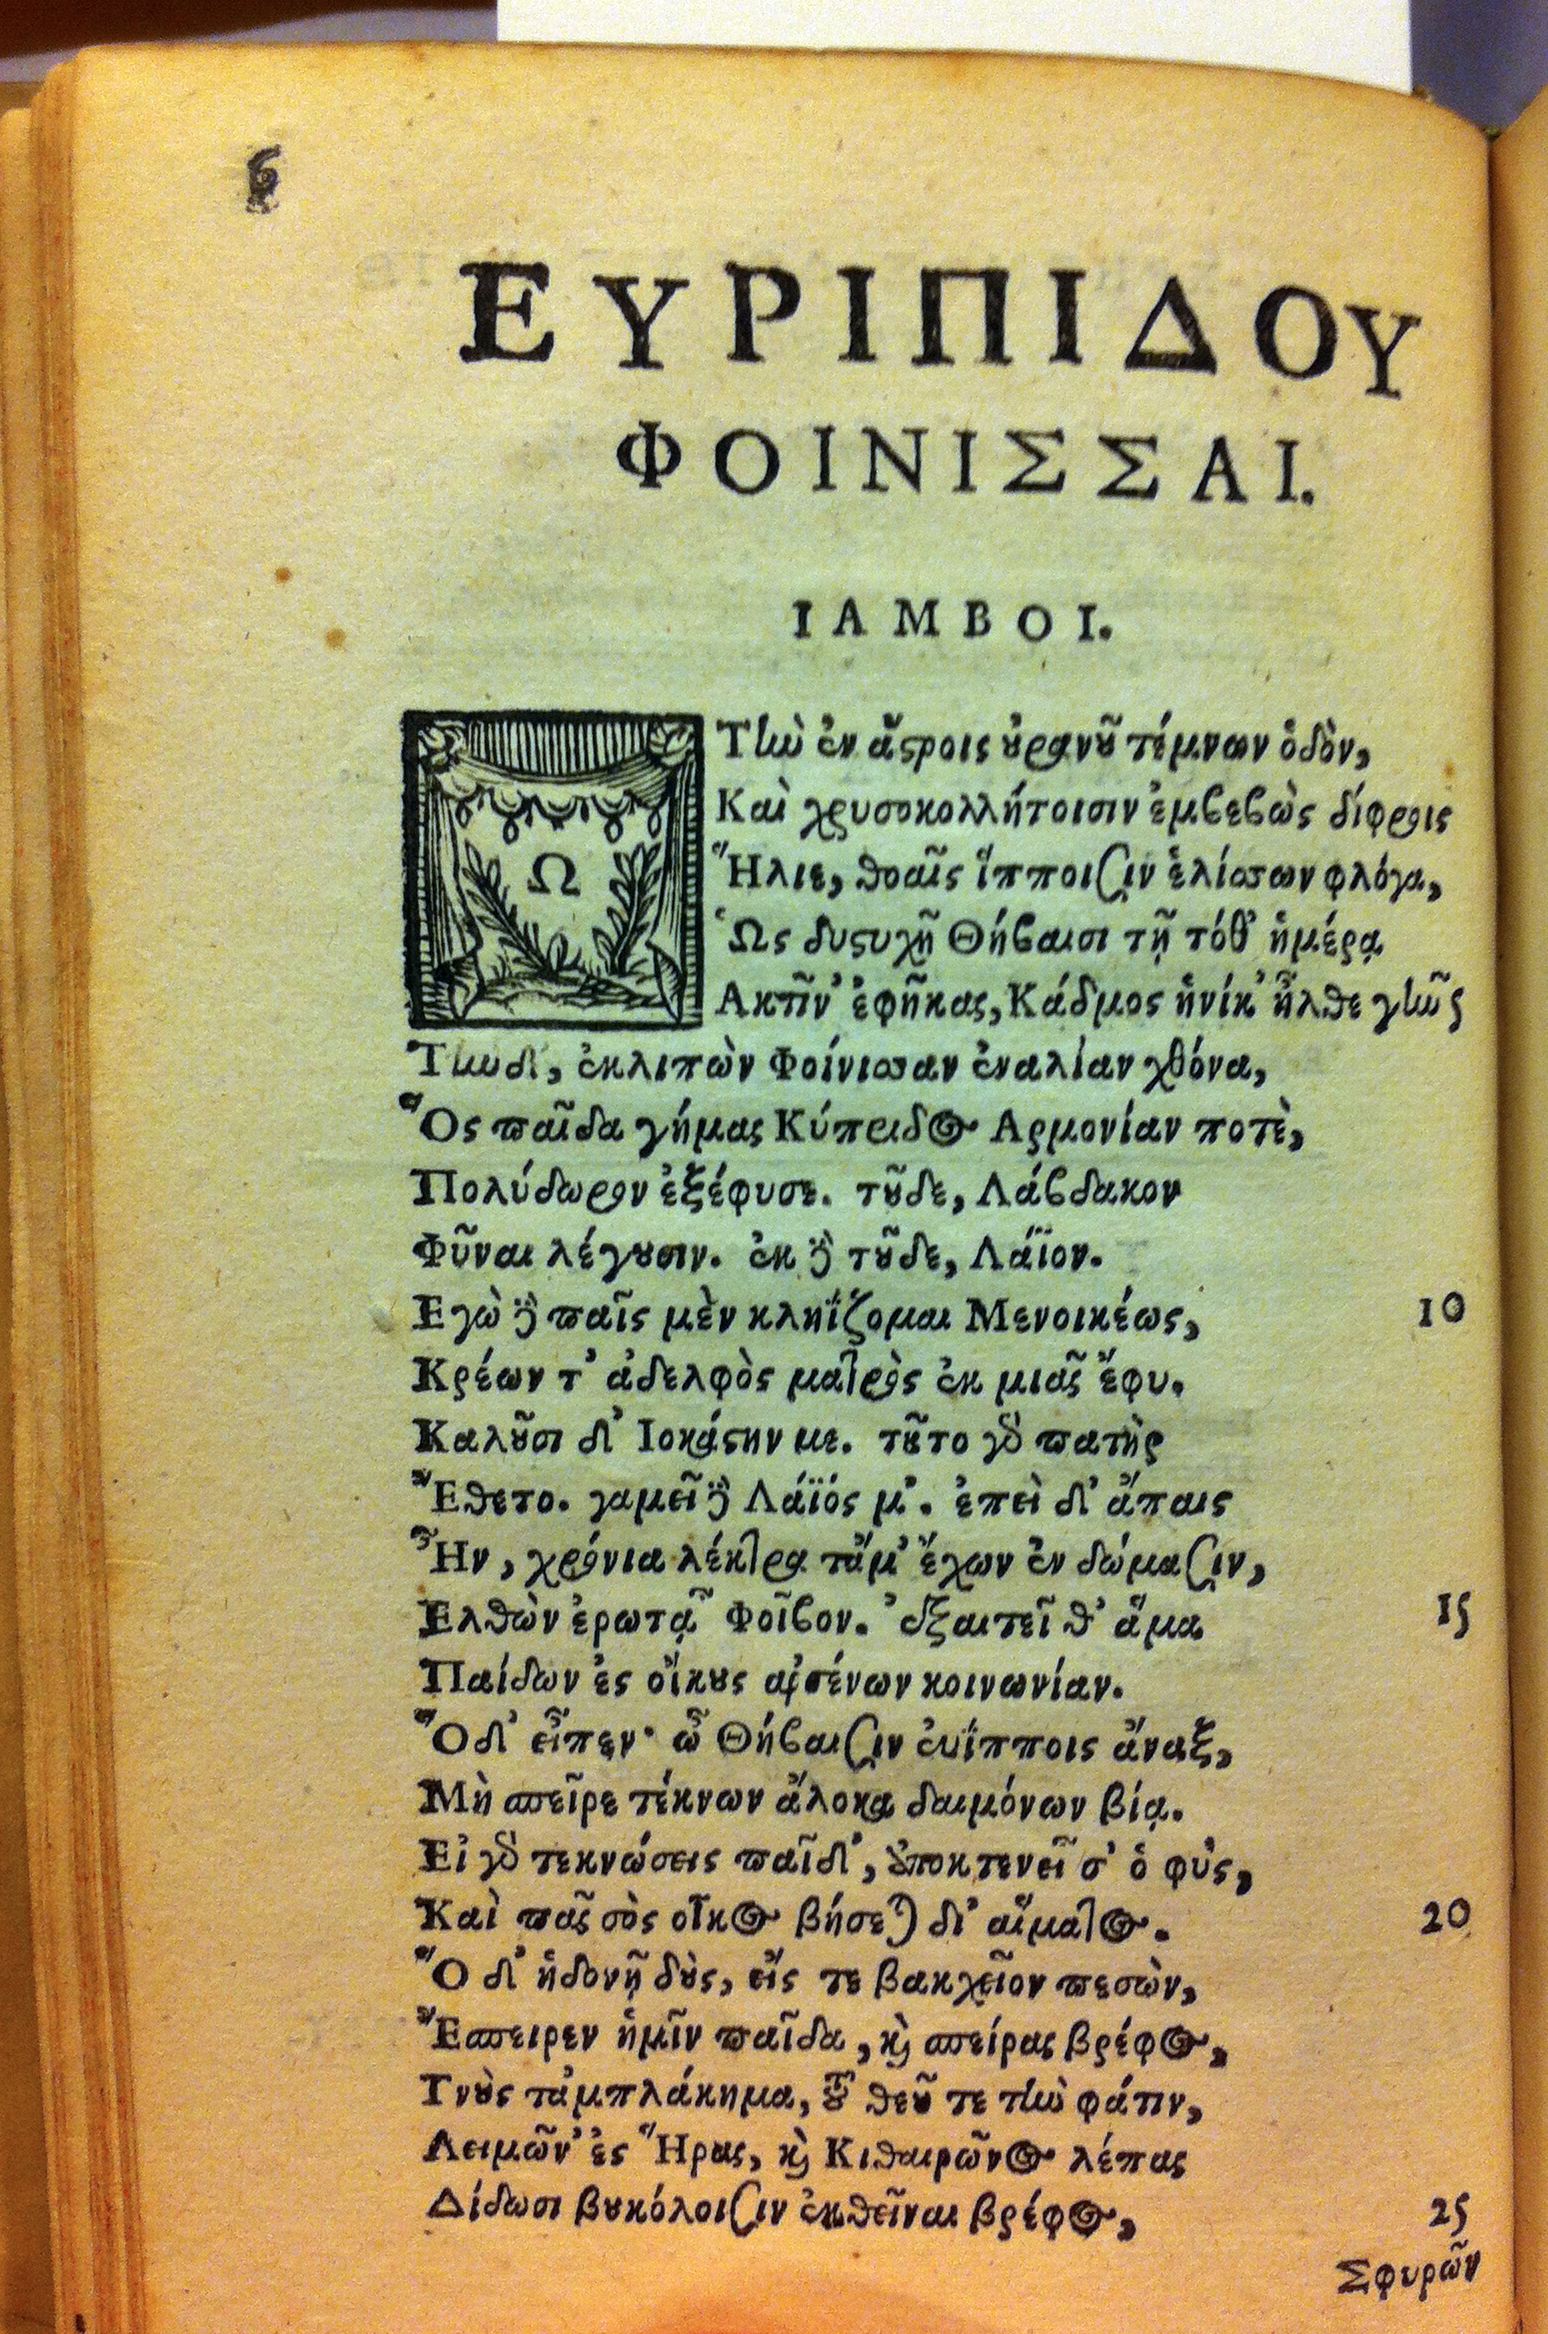 6
ΕΥΡΙΠΙΔΟΥ
ΦΟΙΝΙΣΣΑΙ.
ΙΑΜΒΟΙ.
Ω Τὴν ἐν ἄστροις οὐρανοῦ τέμνων ὁδὸν,
Καὶ χρυσοκολλήτοισιν ἐμβεβὼς δίφροις
Ἥλιε, θοαῖς ἵπποισιν ἑλίσσων φλόγα,
Ὡς δυστυχῆ Θήβαισι τῇ τόθ' ἡμέρᾳ
Ακτῖν' ἐφῆκας, Κάδμος ἡνίκ' ἦλθε γῆν
Τήνδ', ἐκλιπὼν Φοίνισσαν ἐναλίαν χθόνα,
Ὃς παῖδα γήμας Κύπριδος Αρμονίαν ποτὲ,
Πολύδωρον ἐξέφυσε. τοῦδε, Λάβδακον
Φῦναι λέγουσιν. ἐκ δὲ τοῦδε, Λάϊον.
Εγὼ δὲ παῖς μὲν κληΐζομαι Μενοικέως,
10
Κρέων τ' ἀδελφὸς ματρὸς ἐκ μιᾶς ἔφυ.
Καλοῦσι δ' Ιοκάστην με. τοῦτο γὰρ πατὴρ
Ἔθετο. γαμεῖ δὲ Λάϊός μ'. ἐπεὶ δ' ἄπαις
Ἦν, χρόνια λέκτρα τἄμ' ἔχων ἐν δώμασιν,
Ελθὼν ἐρωτᾷ Φοῖβον. ἐξαιτεῖ θ' ἅμα
15
Παίδων ἐς οἴκους ἀρσένων κοινωνίαν.
Ὅδ' εἶπεν· ὦ Θήβαισιν εὐΐπποις ἄναξ,
Μὴ σπεῖρε τέκνων ἄλοκα δαιμόνων βίᾳ.
Εἰ γὰρ τεκνώσεις παῖδ', ἀποκτενεῖ σ' ὁ φὺς,
Καὶ πᾶς σὸς οἶκος βήσεται δι' αἵματος.
20
Ὅ δ' ἡδονῇ δοὺς, εἴς τε βακχεῖον πεσὼν,
Ἔσπειρεν ἡμῖν παῖδα, καὶ σπείρας βρέφος,
Γνοὺς τἀμπλάκημα, τοῦ θεοῦ τε τὴν φάτιν,
Λειμῶν' ἐς Ἥρας, καὶ Κιθαιρῶνος λέπας
Δίδωσι βουκόλοισιν ἐκθεῖναι βρέφος,
25
Σφυρῶν